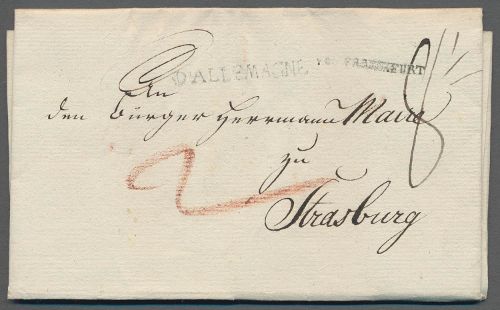 D'ALLEMAGNE
VON FRANKFURT
An
den Bürger Herrmann Maire
zu
Strasburg
2
8